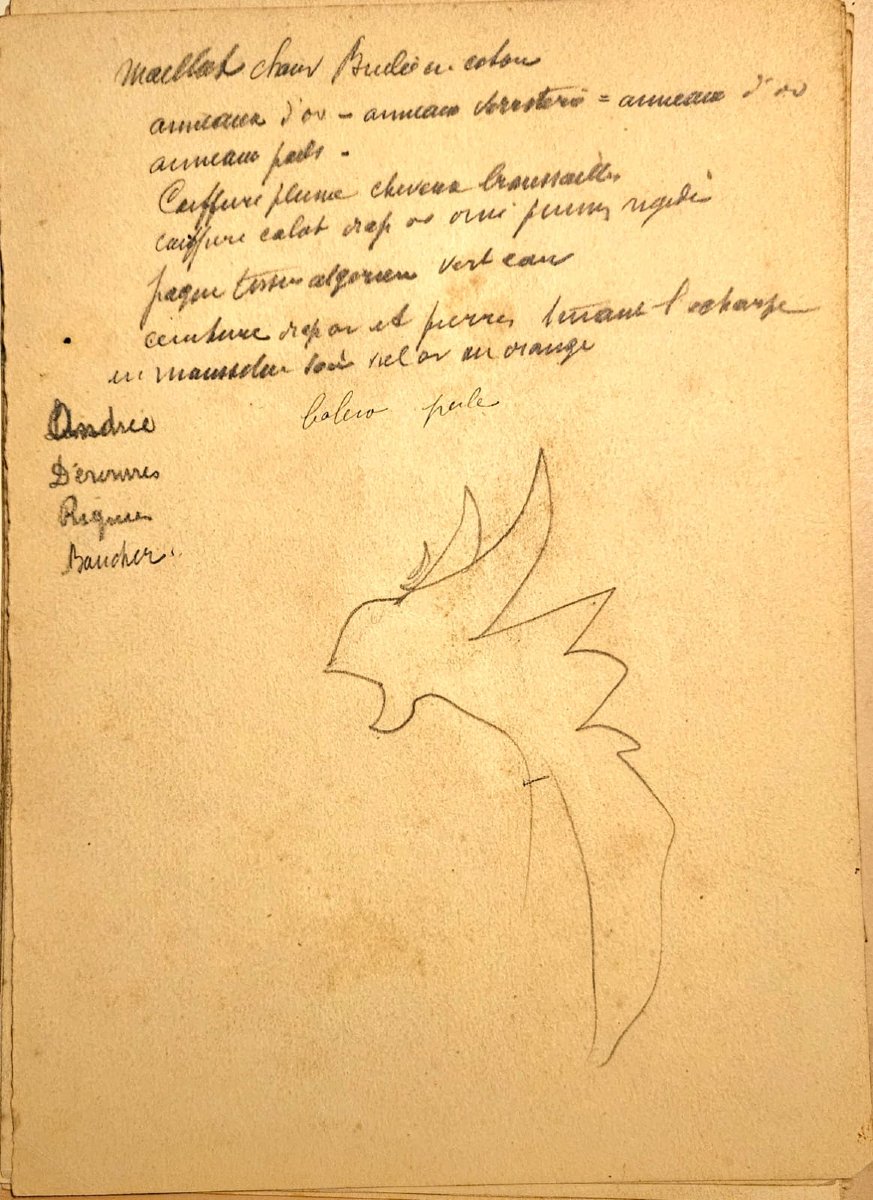 Maillot chair Brulée en coton
anneaux d'or - anneaux verroterie = anneaux d'or
anneaux poils -
Coiffure plume cheveux broussailles
coiffure calot drap or orné plumes rigides
jaque tissu algerien vert eau
ceinture drap or et pierres tenant l'echarpe
en mousseline soie or en orange
bolero perle
Andrée
Regnier
Baucher.